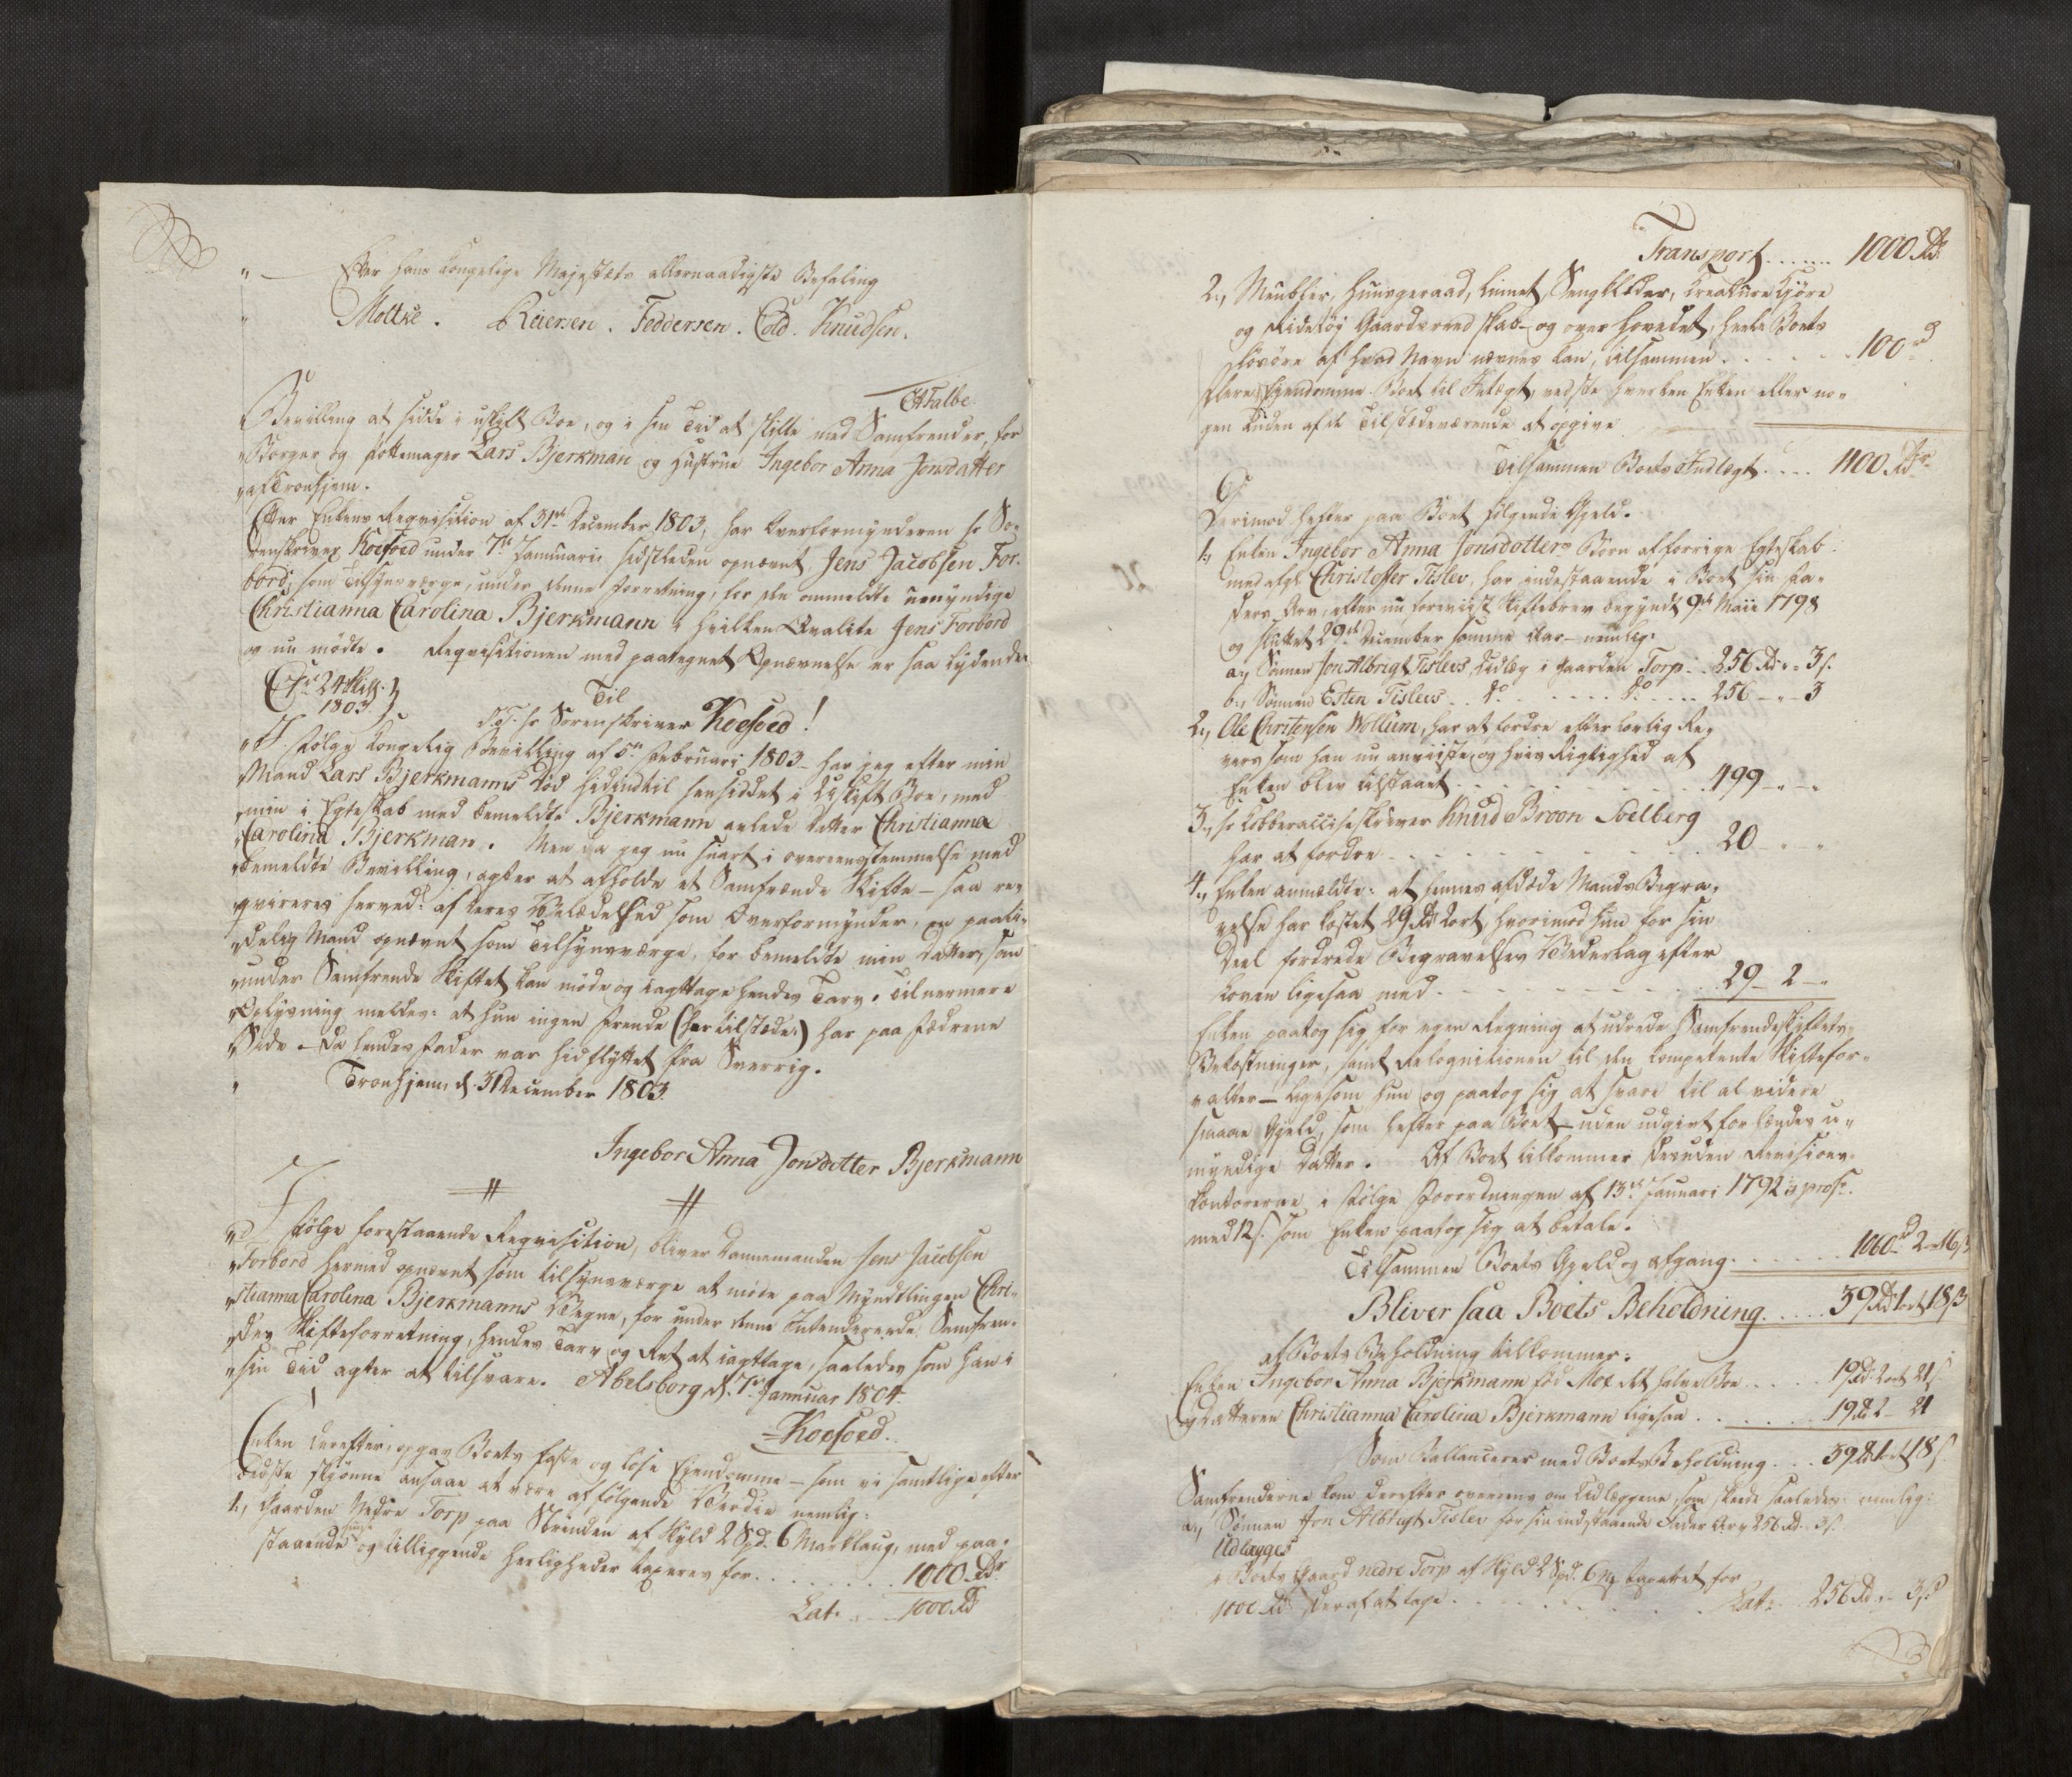 " — Efter Hans Kongelige Majestæts allernaadigste Befaling
" Moltke. Reiersen. Feddersen. Cold. Knudsen.
Thalbe.
Bevilling at sidde i uskift Boe, og i sin Tid at skifte med Samfrender, for
"Borger og Pottemager Lars Bjerkman og Hustrue Ingebor Anna Jonsdatter
"af Tronhjem.
Efter Enkens Requisition af 31te December 1803, har Overformynderen Hr So-
renskriver Koefoed under 7de Januarii sidstleden opnævnt Jens Jacobsen For-
bord, som Tilsynsværge, under denne Forretning, for den ommeldte umyndige
Christianna Carolina Bjerkmann i hvilken Qvalite Jens Forbord
og nu mödte. Requisitionen med paategnet Opnævnelse er saa lydende
No 24 Skill.
1803.
Til
S.T. Hr Sorenskriver Koefoed!
"I Fölge Kongelig Bevilling af 5te Februari 1803 har jeg efter min
"Mand Lars Bjerkmanns Död hidindtil hensiddet i Uskift Boe, med
"min i Egteskab med bemeldte Bjerkmann avlede Datter Christianna
"Carolina Bjerkman. Men da jeg nu snart i overeensstemmelse med
"bemeldte Bevilling, agter at afholde et Samfrænde Skifte — saa re-
"qvireres herved: af deres Velædelhed som Overformynder, en paali-
"delig Mand opnævnt som Tilsynsværge, for bemeldte min Datter, som
"under Samfrende Skiftet kan möde og iagttage hendes Tarv. Til nermere
"Oplysning meldes: at hun ingen Frende (her tilstæde) har paa Fædrene
"Side — da hendes Fader var hidflyttet fra Sverrig.
" Tronhjem, d. 31 December 1803.
Ingebor Anna Jonsdotter Bjerkmann
"I Fölge forestaaende Requisition, bliver Dannemanden Jens Jacobsen
"Forbord hermed opnævnt som tilsynsværge at möde paa Myndtlingen Chri-
"stianna Carolina Bjerkmanns Vegne, for under denne Intenderende Samfren-
"des Skifteforretning, hendes Tarv og Ret at iagttage, saaledes som han i
"sin Tid agter at tilsvare. Abelsborg d. 7de Januar 1804.
Koefoed.
Enken derefter, opgav Boets faste og löse Ejendomme — som vi samtlige efter
bedste skjönne ansaae at være af fölgende Værdie nemlig:
1., Gaarden Nedre Torp paa Strinden af Skyld 2 Spd. 6 Marklaug, med paa-
staaende Huuse og tilliggende Herligheder taxeres for . . . . . . 1000 Rdr
Lat. . . . 1000 Rd
Transport . . . . . 1000 Rd.
2., Meubler, Huusgeraad, Linnet, Sengklæder, Kreature Kjöre
og Ridetöy Gaardsredskab og over hovedet, heele Boets
Lösöre af hvad Navn nævnes kan, tilsammen . . . . . . 100 rd
Flere Ejendomme Boet til Indtægt, vedste hverken Enken eller no-
gen Anden af de Tilstædeværende at opgive
Tilsammen Boets Indtægt . . . . 1100 Rdr
Derimod hefter paa Boet fölgende Gjeld.
1., Enken Ingebor Anna Jonsdotters Börn af forrige Egteskab
med afgl. Christoffer Tislev, har indestaaende i Boet sin Fa-
ders Arv, efter nu foreviist Skiftebrev begyndt 9de Maii 1798
og sluttet 29de December samme Aar — nemlig:
a., Sönnen Jon Albrigt Tislevs Udlæg i Gaarden Torp . . 256 Rd " 3 s.
b., Sönnen Esten Tislevs . . do . . . . . . do . . . . 256 — " — 3
2., Ole Christensen Wollum, har at fordre efter lovlig Re-
vers som han nu anviiste og hvis Rigtighed af
Enken blev tilstaaet . . . . . . . . . . . 499 — " — "
3., Hr Kobberacciseskriver Knud Broon Soelberg
har at fordre . . . . . . . . . . . . 20 — " "
4., Enken anmeldte: at hennes afdöde Mands Begra-
velse har kostet 29 Rd 2 ort, hvorimod hun for sin
Deel fordrede Begravelses Vederlag efter
Loven ligesaa med . . . . . . . . . . . 29 — 2 — "
Enken paatog sig for egen Regning at udrede Samfrendeskiftets
Bekostninger, samt Recognitionen til den Competente Skiftefor-
valter — ligesom hun og paatog sig at svare til al videre
smaae Gjeld, som hefter paa Boet — uden udgivt for hendes u-
myndige Datter. Af Boet tilkommer desuden Revisions-
kontorerne i Fölge Forordningen af 13de Januari 1792
med 12 s. som Enken paatog sig at betale.
Tilsammen Boets Gjeld og afgang . . . . . . 1060 rd 2 — 16 s
Bliver saa Boets Beholdning . . . . . 39 Rd 1 ort 18 s
af Boets Beholdning tilkommer.
Enken Ingebor Anna Bjerkmann föd Moe det halve Boe . . . . 19 Rd 2 ort 21 s
og Datteren Christianna Carolina Bjerkmann ligesaa . . . . . . 19 Rd 2 — 21
Som Ballancerer med Boets Beholdning . . . 39 Rd 1 ort 18 s.
Samfrenderne kom derefter overeens om Udlæggene, som skeede saaledes: nemlig:
a., Sönnen Jon Albrigt Tislev for sin indstaaende Fader Arv 256 Rd. 3 s.
Udlægges
i Boets Gaard nedre Torp af Skyld 2 Spd. 6 mk taxeret for
1000 Rd. deraf at tage . . . . . . . . . . Lat: . . 256 Rd " 3 s